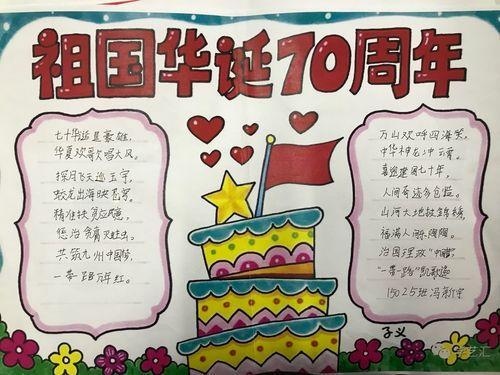 祖国华诞70周年
七十华诞显豪雄,
华夏欢歌唱大风。
探月飞天巡玉宇,
蛟龙出海映苍穹。
精准扶贫应民意,
惩治贪腐灭蛀虫。
共筑九州中国梦,
一带一路万年红。
万山欢呼四海笑,
中华神龙冲云霄。
喜迎建国七十年,
人间奇迹多
山河大地披锦绣,
福满人间
治国理政
"一带一路"凯歌
15025班冯新宇
子义
学艺汇